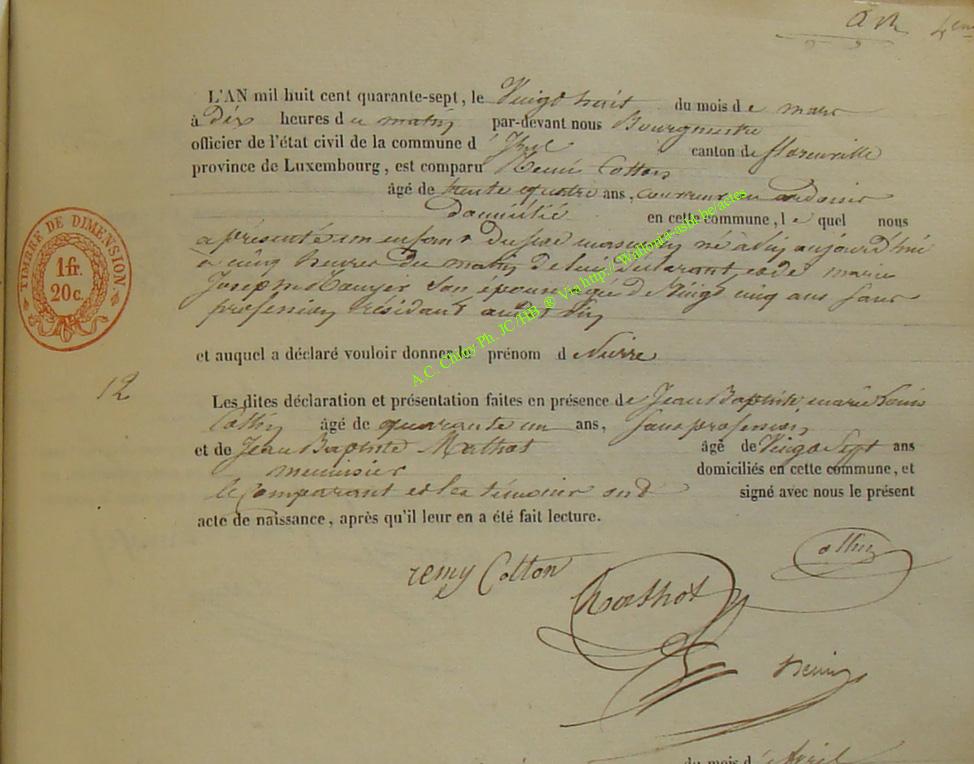 L'AN mil huit cent quarante-sept, le Vingt huit du mois de mars
à Dix heures du matin par-devant nous Bourgmestre
officier de l'état civil de la commune d' canton de florenville
province de Luxembourg, est comparu Remi Cotton
âgé de trente quatre ans, couvreur en ardoises
domicilié en cette commune, le quel nous
a présenté un enfant du sexe masculin né à aujourd'hui
à cinq heures du matin de lui déclarant, et de marie
Joseph son épouse agée de Vingt cinq ans sans
profession résidant audit
et auquel a déclaré vouloir donner le prénom de
12
Les dites déclaration et présentation faites en présence de Jean Baptiste marie Louis
âgé de quarante un ans, sans profession
et de Jean Baptiste Mathot âgé de Vingt Sept ans
menuisier domiciliés en cette commune, et
le Comparant et les témoins ont signé avec nous le présent
acte de naissance, après qu'il leur en a été fait lecture.
remy Cotton
Mathot
TIMBRE DE DIMENSION
1 fr.
20 c.
A.C. Chiny Ph. JC/HB ® Via http://Wallonia-asbl.be/actes
du mois d'Avril